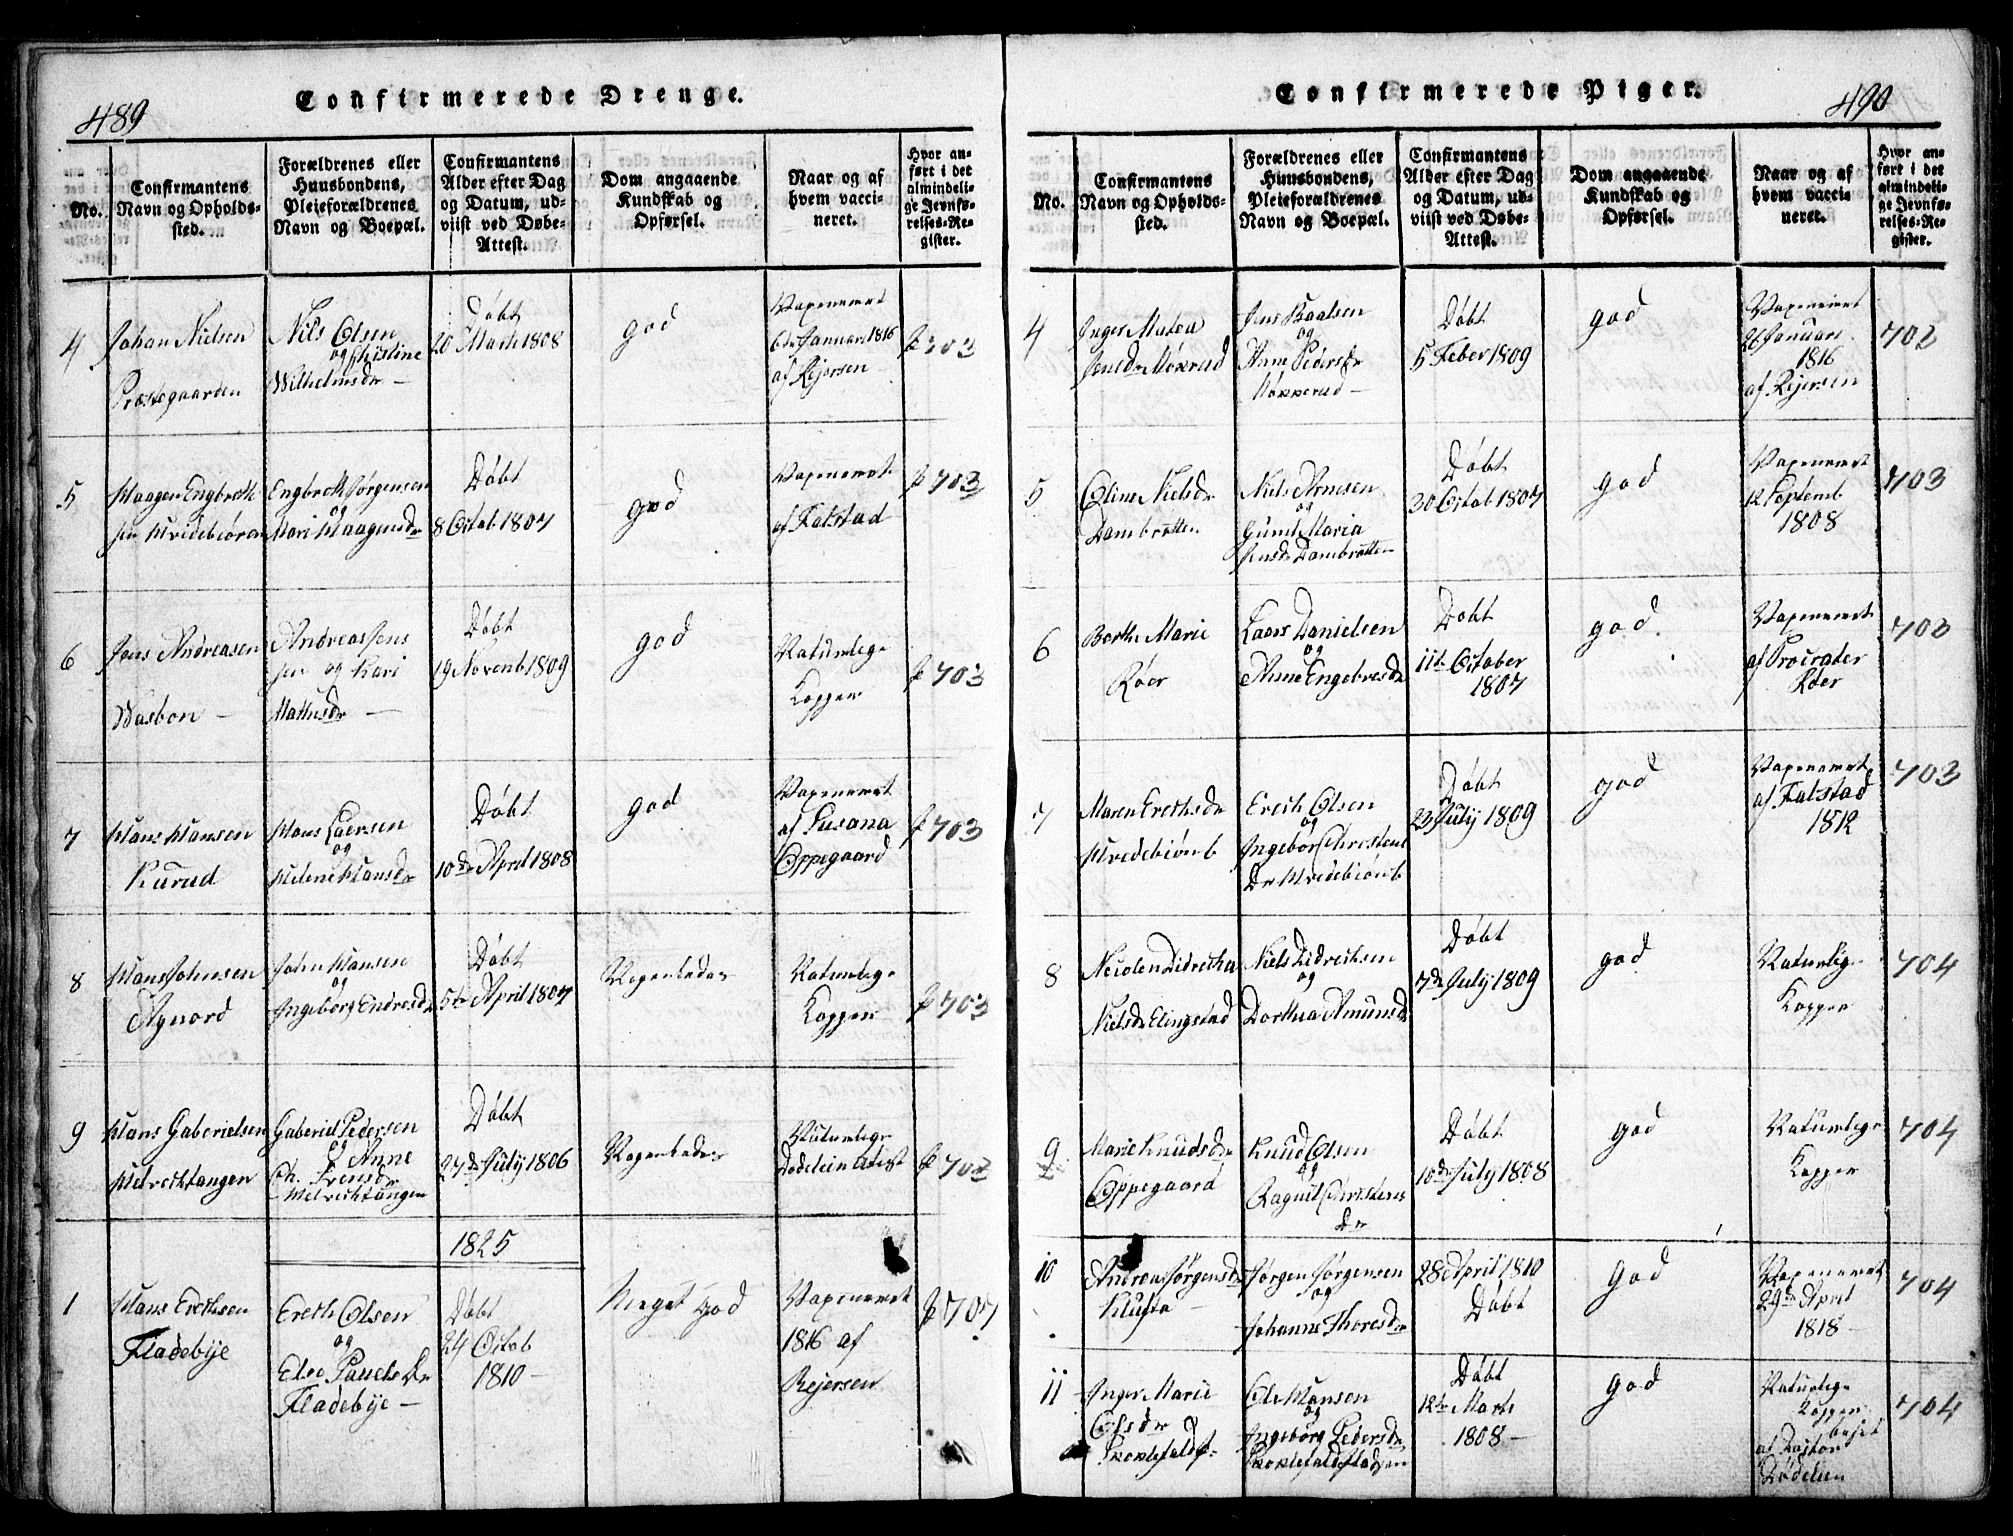 489
Confirmerede Drenge.
No.
Confirmantens
Navn og Opholds-
sted.
Forældrenes eller
Huusbondens,
Pleieforældrenes
Navn og Boepæl.
Confirmantens
Alder efter Dag
og Datum, ud-
viist ved Døbe-
Attest.
Dom angaaende
Kundskab og
Opførsel.
Naar og af
hvem vacci-
neret.
Hvor an-
ført i det
almindeli-
ge Jevnfø-
relses-Re-
gister.
4
Johan Nielsen
Præstegaarden
Nils Olsen
og Christine
Wilhelmsdr
Døbt
20 Mach 1808
god
Vaxeneret
6te Januari 1816
af Rejersen
703
5
Haagen Engbreth
sen Hvidebiøren
Engbreth Jørgensen
og
Mari Haagensdr
Døbt
8 Octob 1807
god
Vaxeneret
af Falstad
703
6
Jens Andreasen
Wasbon
Andreas Jens
sen og Kari
Mathisdr
Døbt
19 Novemb 1809
god
Naturlige
Kopper
703
7
Hans Hansen
Kurud
Hans Laersen
og
Helene Hansdr
Døbt
10de April 1808
god
Vaxeneret
af Susana
Oppegaard
703
8
Hans Johnsen
Agnord
John Hansen
og
Ingeborg Endresdr
Døbt
5te April 1807
Naturlige
Kopper
703
9
Hans Gaberielsen
Gaberiel Pedersen
og Anne
Døbt
27de July 1806
Naturlige
703
1825
1
Hans Erichsen
Fladebye
Erich Olsen
og
Else Pauels Dr
Fladebye
Døbt
24 Octob
1810
Meget god
Vaxeneret
1816 af
Rejersen
707
Confirmerede Piger.
490
No.
Confirmantens
Navn og Opholds-
sted.
Forældrenes eller
Huusbondens,
Pleieforældrenes
Navn og Boepæl.
Confirmantens
Alder efter Dag
og Datum, ud-
viist ved Døbe-
Attest.
Dom angaaende
Kundskab og
Opførsel.
Naar og af
hvem vacci-
neret.
Hvor an-
ført i det
almindeli-
ge Jevnfø-
relses-Re-
gister.
4
Inger Matea
Jensdr Møkerud
Jens Paalsen
og
Anne Pedersdr
Møkkerud
Døbt
5 Feber 1809
god
Vaxeneret
26 Januari
1816
af Rejersen
702
5
Oline Nielsdr
Dambratten
Niels Arnesen
og
Gunil Maria
Jensdr Dambratten
Døbt
30 Octob 1807
god
Vaxeneret
12 Septemb
1808
703
6
Berthe Marie
Røer
Laers Danielsen
og
Anne Engebresdr
Døbt
11te October
1807
god
Vaxeneret
af
Røer
703
7
Maren Erichsdr
Hvidebiønb
Erich Olsen
og
Ingebor Christens
Dr Hvidebiønb
Døbt
23 July 1809
god
Vaxeneret
af Falstad
1812
703
8
Nielsdr Elingstad
Niels Didrichsen
og
Dorthea Amunsdr
Døbt
7de July 1809
god
Naturlige
Kopper
704
9
Marie Knudsdr
Oppegaard
Knud Olsen
og
Ragnil Christens
Dr
Døbt
10de July 1808
god
Naturlige
Kopper
704
10
Andrea Jørgensdr
Klufta
Jørgen Jørgensen
og
Johanne Thoresdr
28 April 1810
Døbt
god
Vaxeneret
29de April
1818
704
11
Inger Marie
Olsdr
Ole Hansen
og
Ingeborg Pedersdr
Døbt
12te Marts
1808
god
Naturlige
Kopper
af Pastor
Dødelein
704